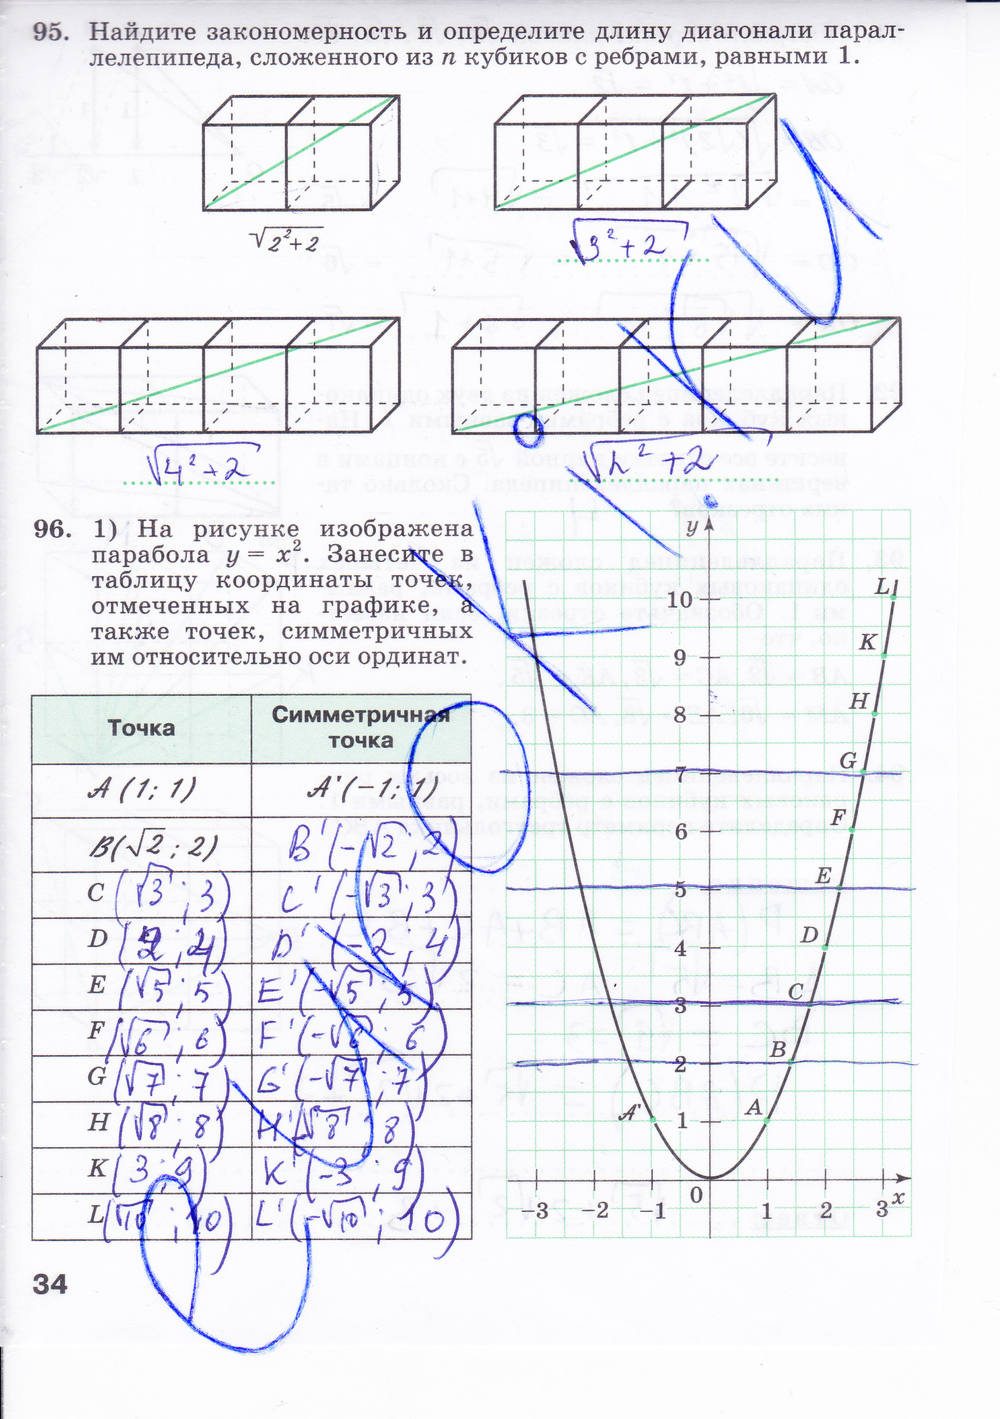 95. Найдите закономерность и определите длину диагонали парал-
лелепипеда, сложенного из n кубиков с ребрами, равными 1.
√2²+2
√3²+2
√4²+2
√n²+2
96. 1) На рисунке изображена
парабола y = x². Занесите в
таблицу координаты точек,
отмеченных на графике, а
также точек, симметричных
им относительно оси ординат.
Точка Симметричная точка
A (1; 1) A'(−1; 1)
B(√2; 2) B'(−√2; 2)
C (√3; 3) C'(−√3; 3)
D (2; 4) D'(−2; 4)
E (√5; 5) E'(−√5; 5)
F (√6; 6) F'(−√6; 6)
G (√7; 7) G'(−√7; 7)
H (√8; 8) H'(−√8; 8)
K (3; 9) K'(−3; 9)
L (√10; 10) L'(−√10; 10)
y
10 L
9 K
8 H
7 G
6 F
5 E
4 D
3 C
2 B
A' 1 A
0
−3 −2 −1 1 2 3 x
34